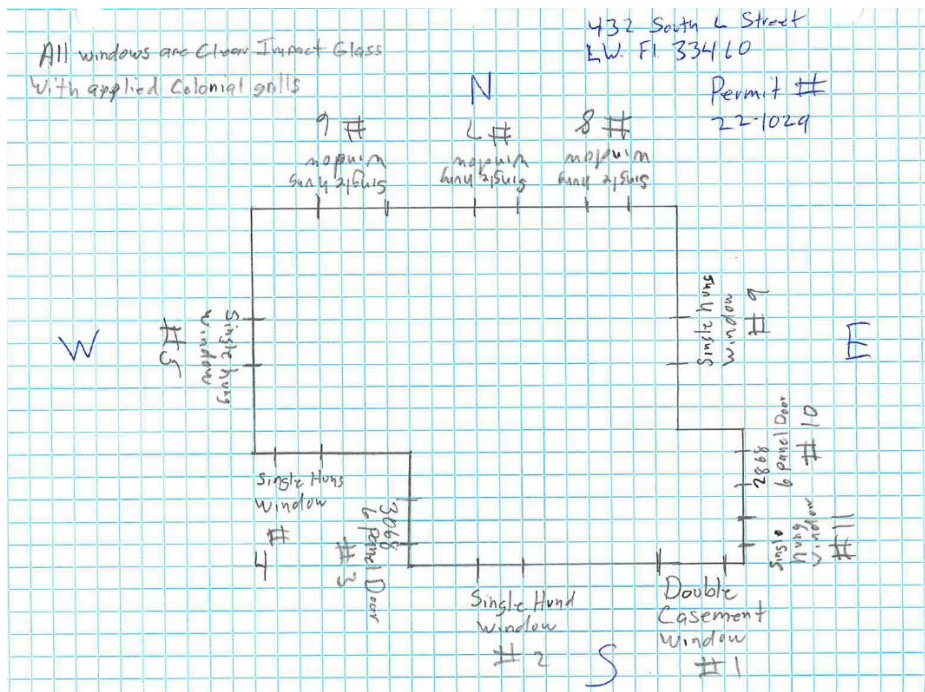 All windows are Clear Impact Glass
With applied Colonial grills
432 South L Street
LW. Fl. 33460
Permit #
22-1029
N
# 6
Single hung
window
# 7
Single hung
window
# 8
Single hung
window
W
#5
Single hung
window
Single Hung
window
# 9
E
2868
6 panel Door
# 10
Single
hung
window
#11
Single Hung
Window
#
4
3068
6 panel Door
# 3
Single Hund
window
# 2
S
Double
Casement
Window
# 1